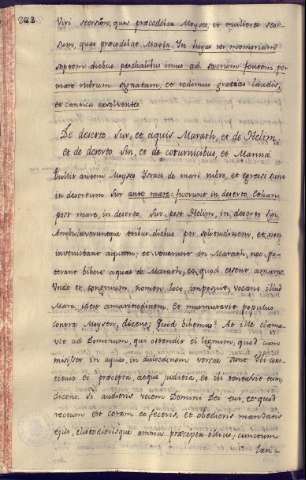 Viri seorsim, quos procedebat Moyses, et mulieres seor-
sum, quas procedebat Maria. In huius rei memoriam
septem diebus paschalibus imus ad sacrum fontem per
mare rubrum signatum, et redimus gratias laudis,
et cantica exolventes.
De deserto Sur, et aquis Marath, et de Helim
et de deserto Sin, et de coturnicibus, et Manna
Tulit autem Moyses Israel de mari rubro, et egressi sunt
in desertum Sur
post mare, in deserto Sur, post Helim, in deserto Sin
Ambulaveruntque tribus diebus per solitudinem, et non
inveniebant aquam; et venerunt in Marath, nec po-
terant bibere aquas de Marath, eo quod essent amarae.
Unde et congruum nomen loco imposuit, vocans illud
Mara, idest amaritudinem, et murmuravit populus
contra Moysen, dicens; Quid bibemus? At ille clama-
vit ad Dominum, qui ostendit ei lignum, quod cum
misisset in aquas, in dulcedinem versae sunt. Ibi con-
stituit ei praecepta, atque judicia, et ibi tentavit eum
dicens. Si audieris vocem Domini Dei tui, et quod
rectum est coram eo feceris, et obedieris mandatis
ejus, custodierisque omnia praecepta illius, cunctum
lan-